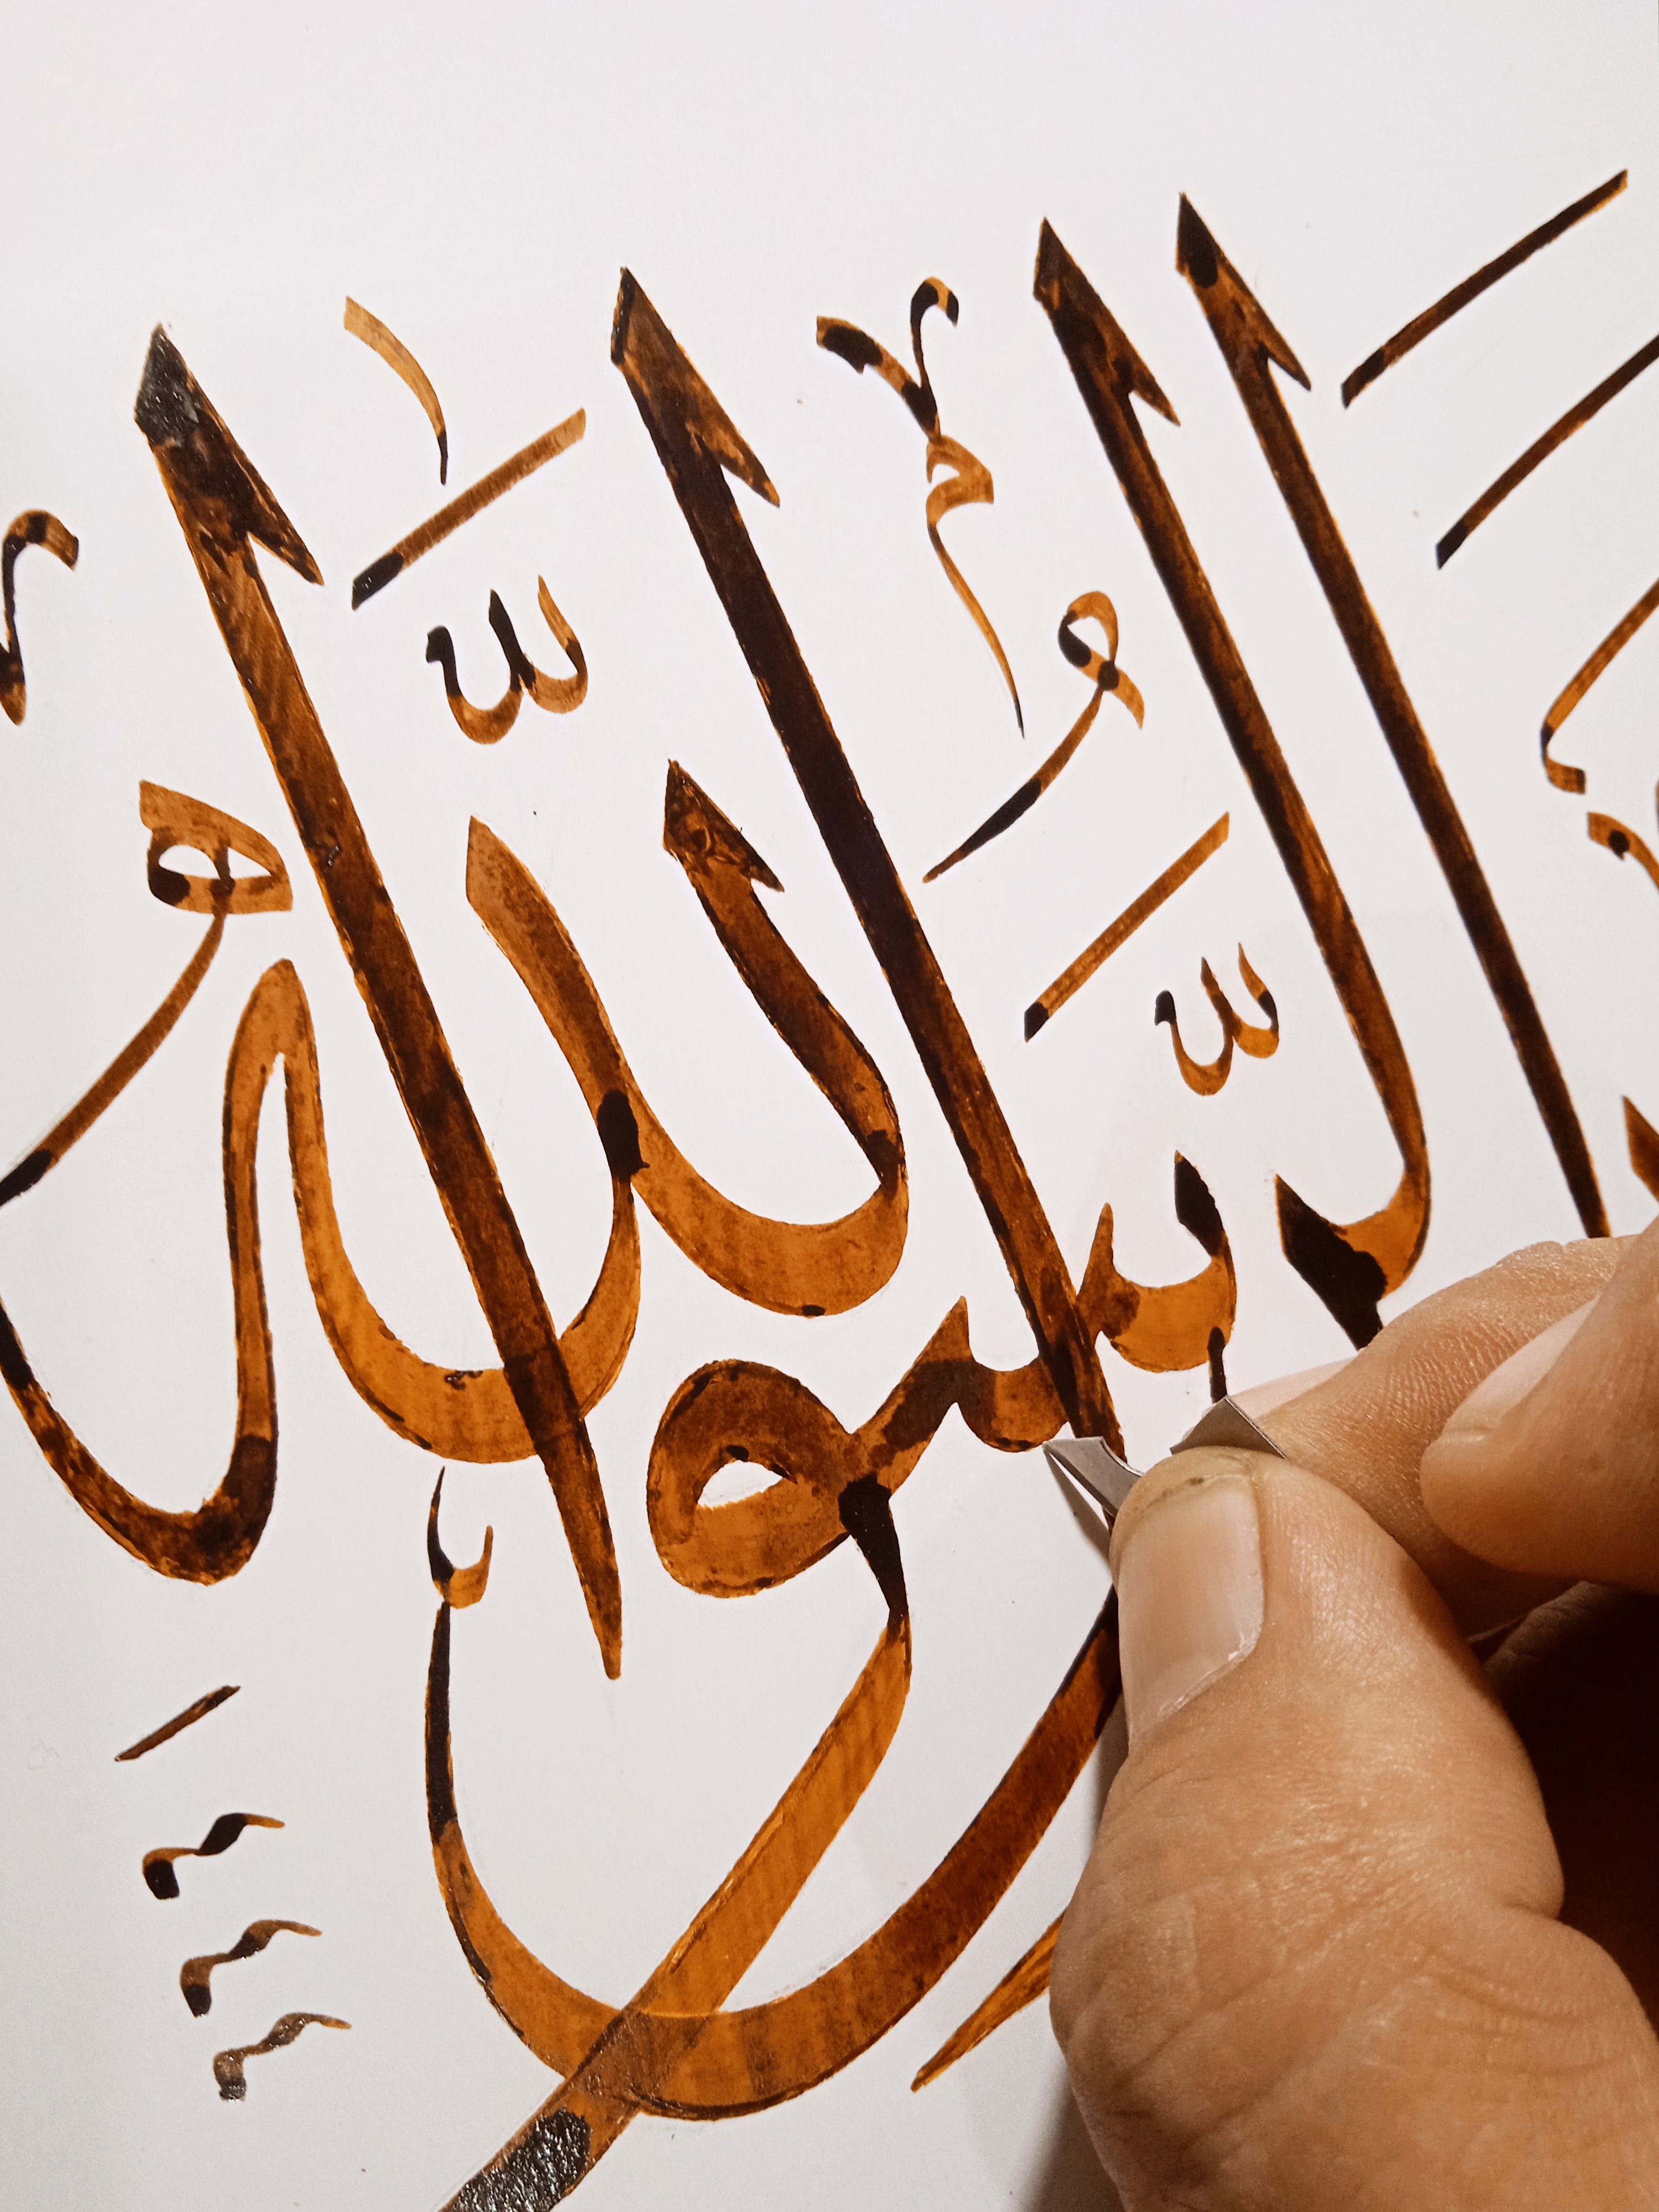 الرَّسُولُ اللَّهَ